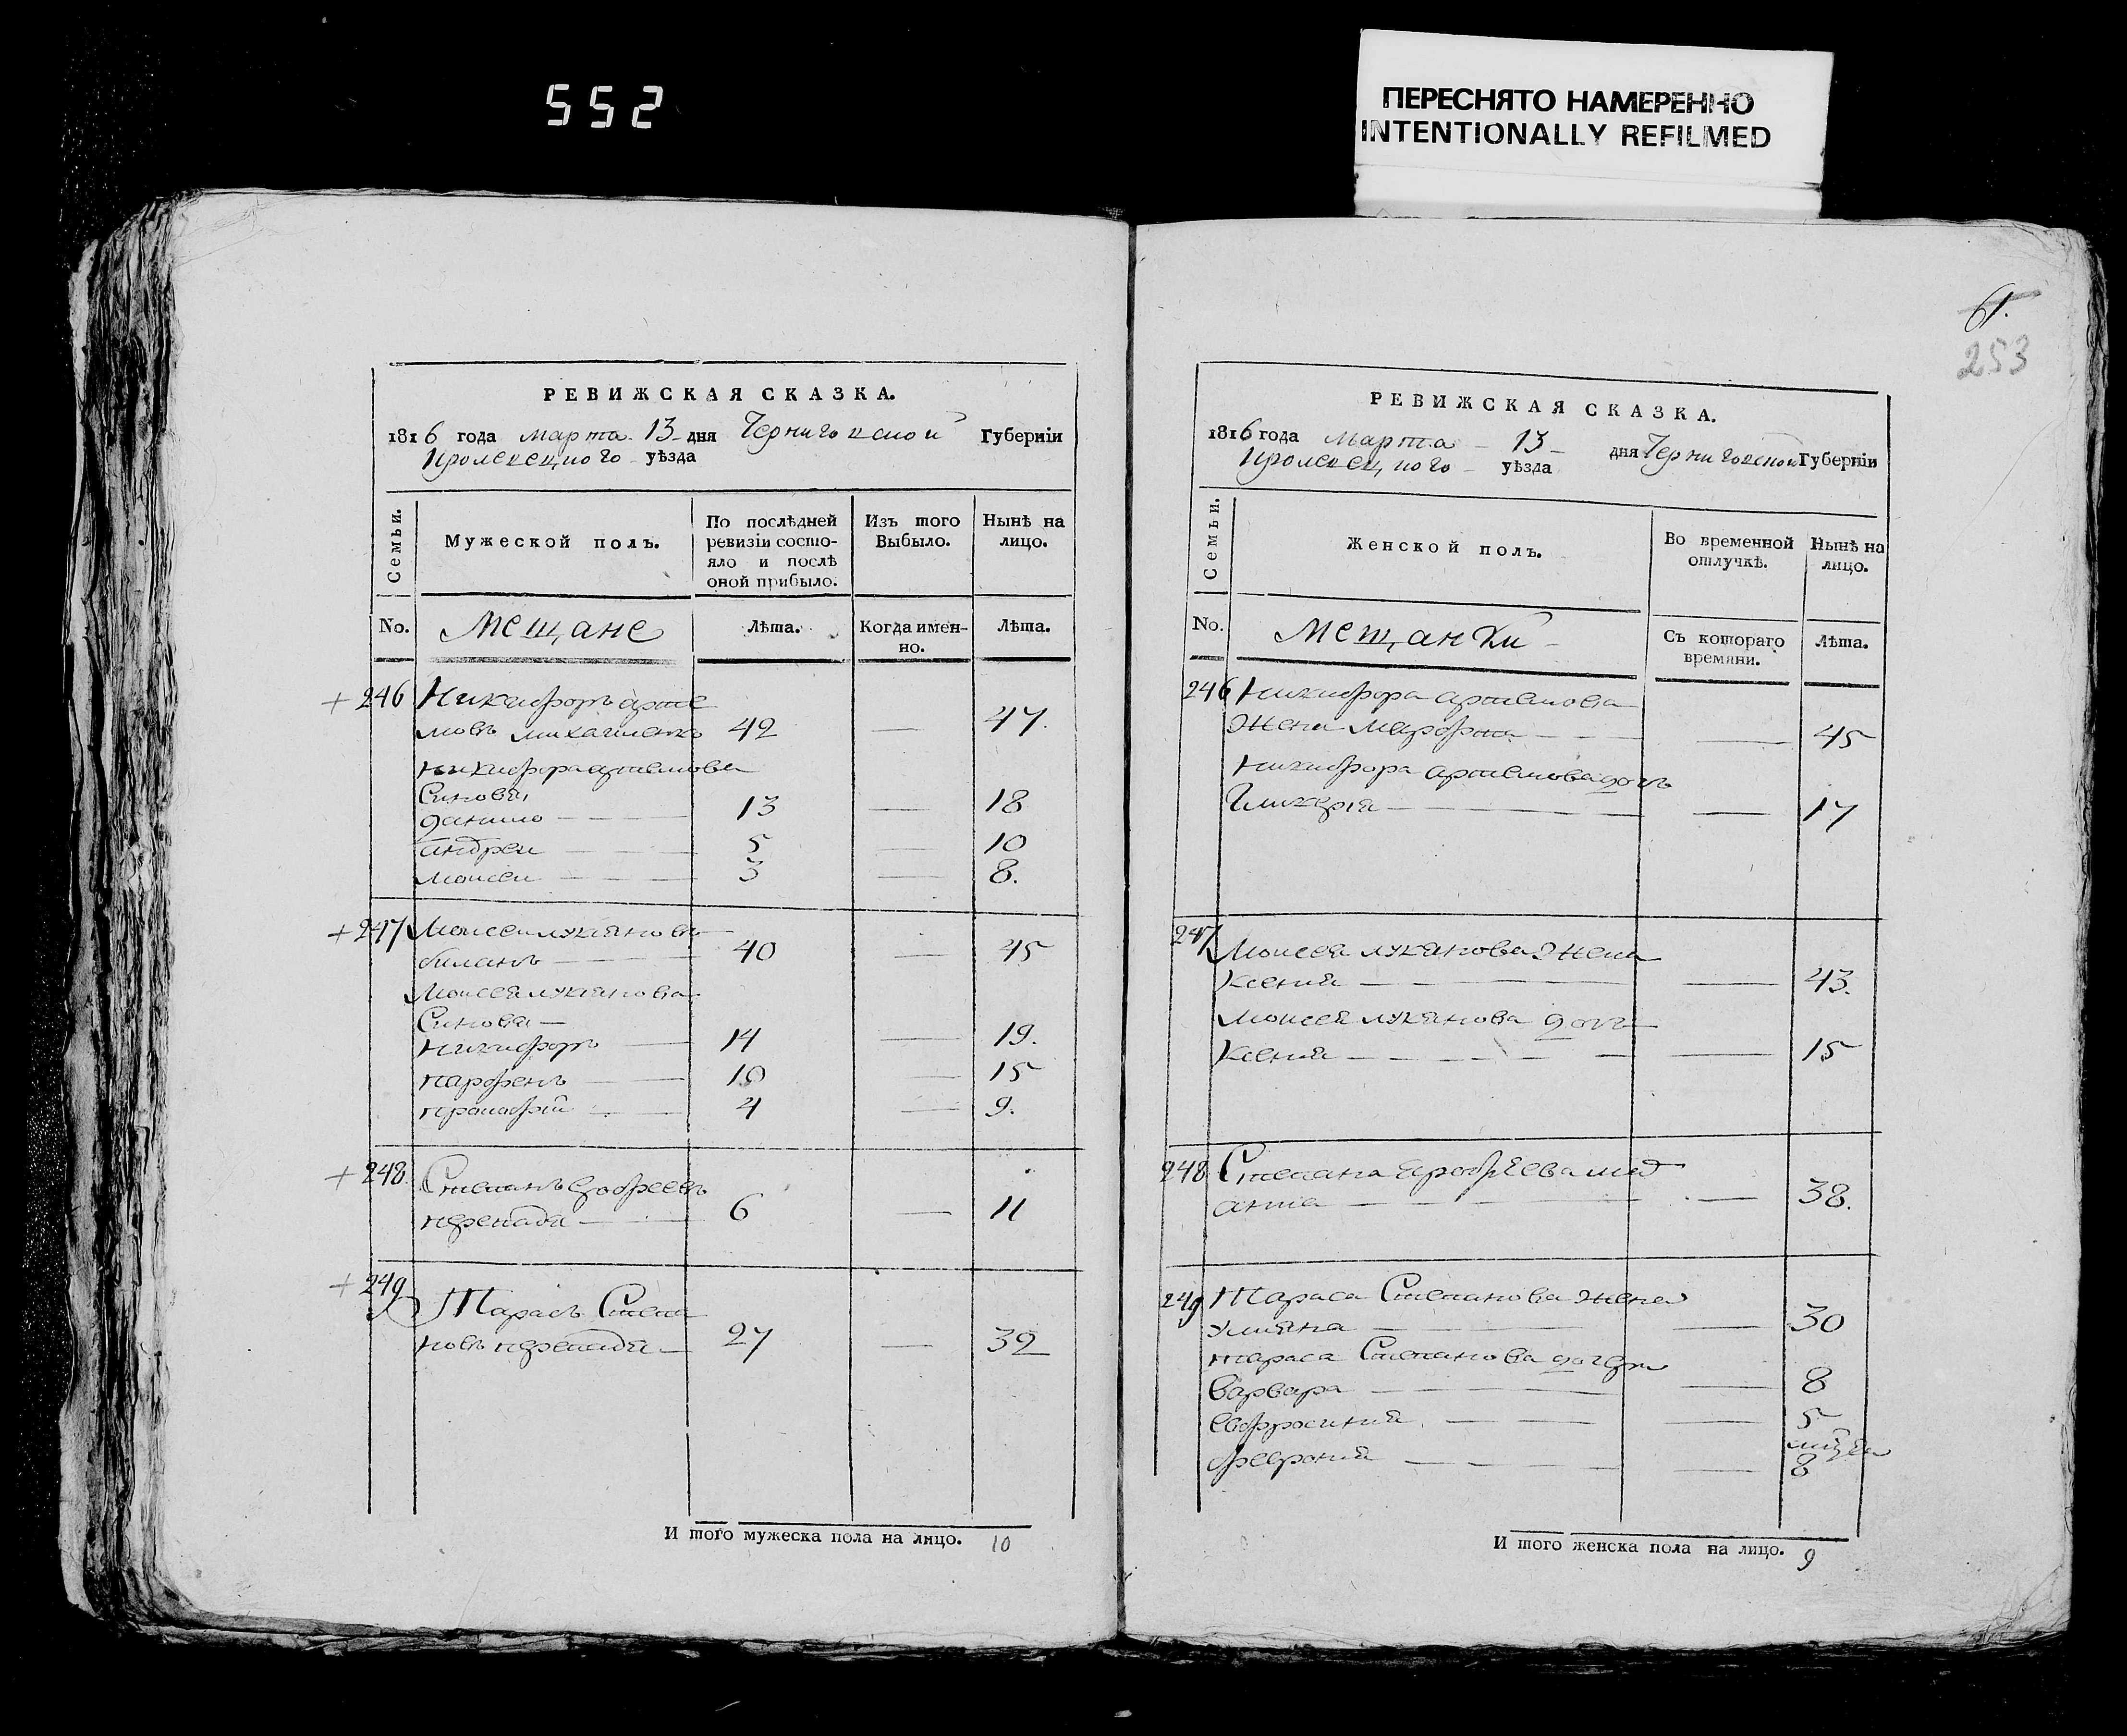 552
ПЕРЕСНЯТО НАМЕРЕННО
INTENTIONALLY REFILMED
61.
253
РЕВИЖСКАЯ СКАЗКА.
1816 года марта 13 дня Черниговской Губерніи
Кролевецкого уѣзда
Семьи.
Мужеской полъ.
По послѣдней ревизіи состо-
яло и послѣ оной прибыло.
Изъ того Выбыло.
Нынѣ на лицо.
No.
Мещане
Лѣта.
Когда имен-
но.
Лѣта.
246 Никифоръ арте
мовъ 42 — 47.
никифора артемова
Синовя,
данило 13 — 18
андреи 5 — 10
моисеи 3 — 8.
247 Моисеи лукяновъ
биланъ 40 — 45
Моисея лукянова
Синовя —
никифоръ 14 — 19.
парфенъ 10 — 15
прокофій 4 — 9.
248. Степанъ
6 — 11
249 Тарасъ Степа
новъ 27 — 32
И того мужеска пола на лицо. 10
РЕВИЖСКАЯ СКАЗКА.
1816 года марта 13 дня Черниговской Губерніи
Кролевецкого уѣзда
Семьи.
Женской полъ.
Во временной отлучкѣ.
Нынѣ на лицо.
No.
Мещанки
Съ котораго времяни.
Лѣта.
246 Никифора артемова
жена Марфа — 45
Никифора артемова дочь
Гликерія — 17
247 Моисея лукянова жена
Ксения — 43.
Моисея лукянова дочь
Ксения — 15
248 Степана
— 38.
249 Тараса Степанова жена
улияна — 30
тараса Степанова дочери
варвара — 8
евфросиния — 5
феврония — 8
И того женска пола на лицо. 9